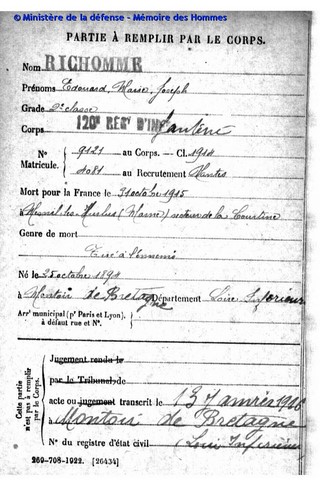 © Ministère de la défense - Mémoire des Hommes
PARTIE À REMPLIR PAR LE CORPS.
Nom RICHOMME
Prénoms Edouard, Marie, Joseph
Grade 2e classe
Corps 120e REGt D'INFanterie
N° Matricule. 9121 au Corps. — Cl. 1914
1081 au Recrutement Nantes
Mort pour la France le 31 octobre 1915
à Mesnil-les-Hurlus (Marne) secteur de la Courtine
Genre de mort
Tué à l'ennemi
Né le 25 octobre 1894
à Montoir de Bretagne Département Loire Inférieure
Arrt municipal (pr Paris et Lyon), à défaut rue et N°.
Cette partie n'est pas à remplir par le Corps.
Jugement rendu le
par le Tribunal de
acte ou jugement transcrit le 13 Janvier 1916
à Montoir de Bretagne
N° du registre d'état civil (Loire Inférieure
269-708-1922. [26434]